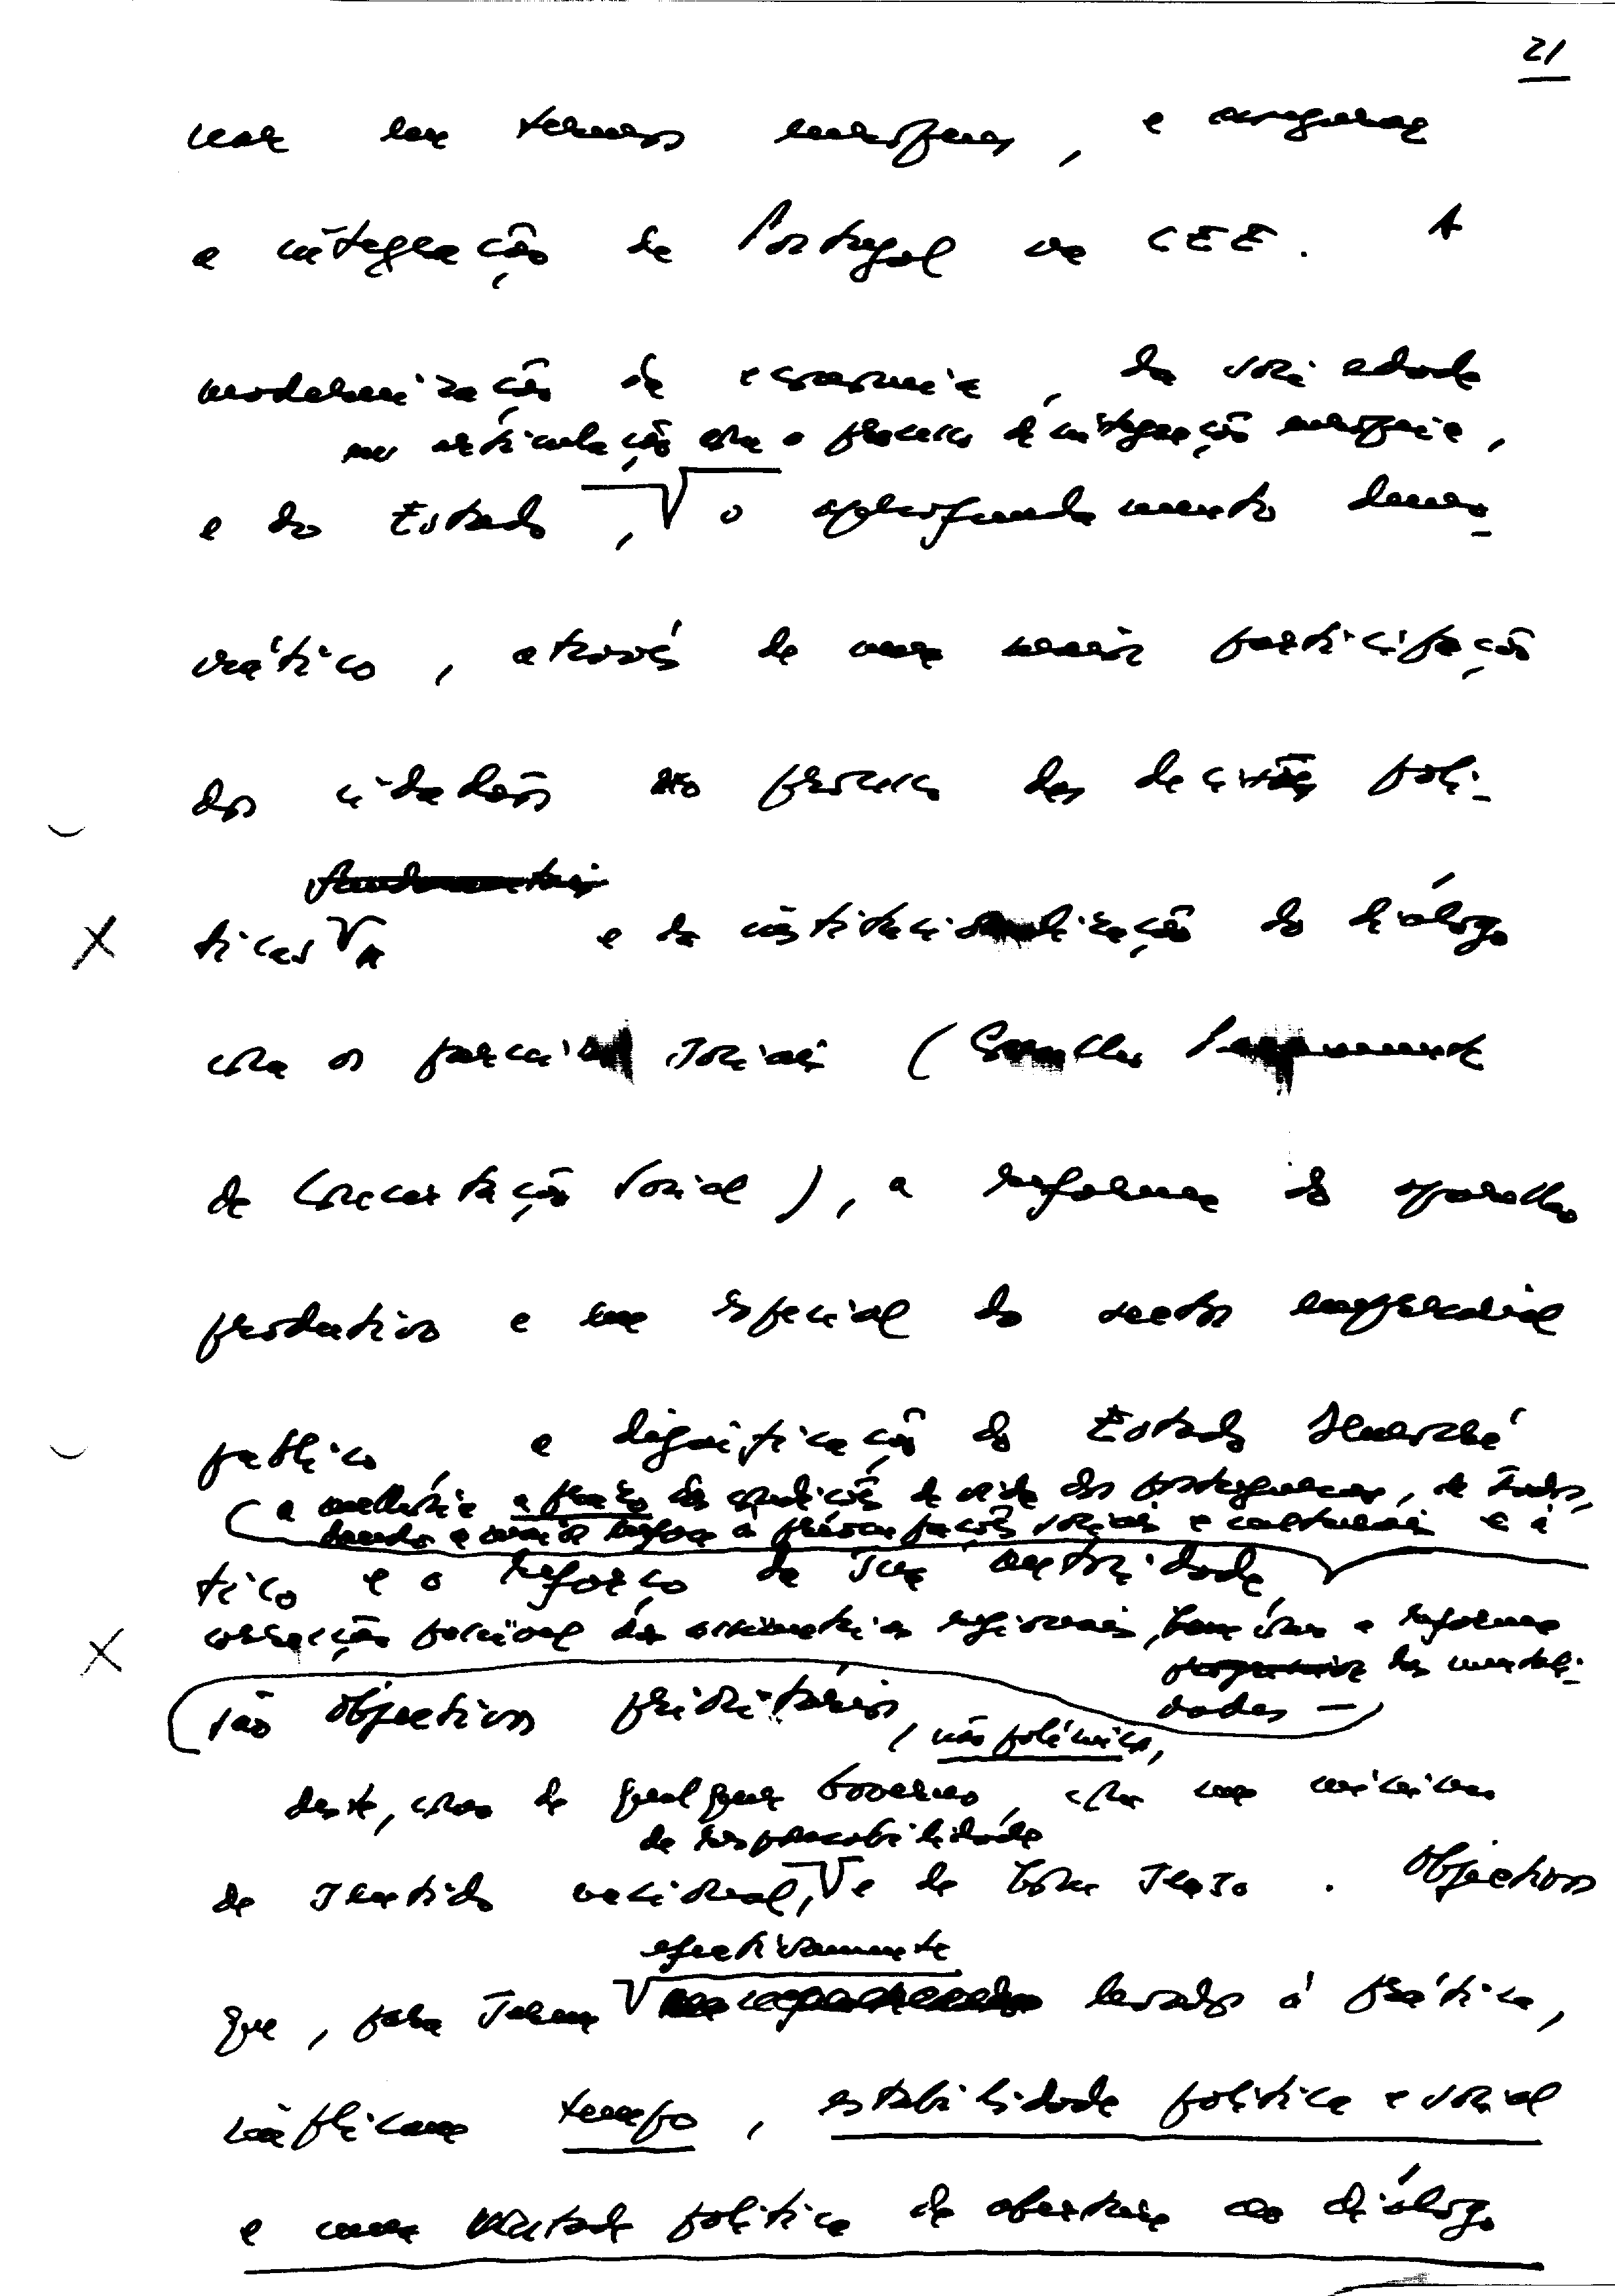 21
em termos europeus, e assegurar
a integração de Portugal na CEE. A
modernização da economia, da sociedade
na articulação com o processo de integração europeia,
e do Estado, o aprofundamento demo-
crático, através de uma maior participação
dos cidadãos no processo das decisões polí-
fundamentais
ticas e da institucionalização do diálogo
com os parceiros sociais (Conselho Permanente
de Concertação Social), a reforma do aparelho
produtivo e em especial do sector empresarial
público, a dignificação do Estado democrá-
a melhoria a prazo das condições de vida dos portugueses, de todos,
dando a maior ênfase às preocupações sociais e culturais e à
tico e o reforço da sua autoridade
correcção possível das assimetrias regionais, bem como a reforma
progressiva das mentali-
dades —
são objectivos prioritários, não polémicos,
deste, como de qualquer Governo, com um mínimo
de responsabilidade
de sentido nacional, e de bom senso. Objectivos
efectivamente
que, para serem levados à prática,
implicam tempo, estabilidade política e social
e uma vontade política de abertura ao diálogo